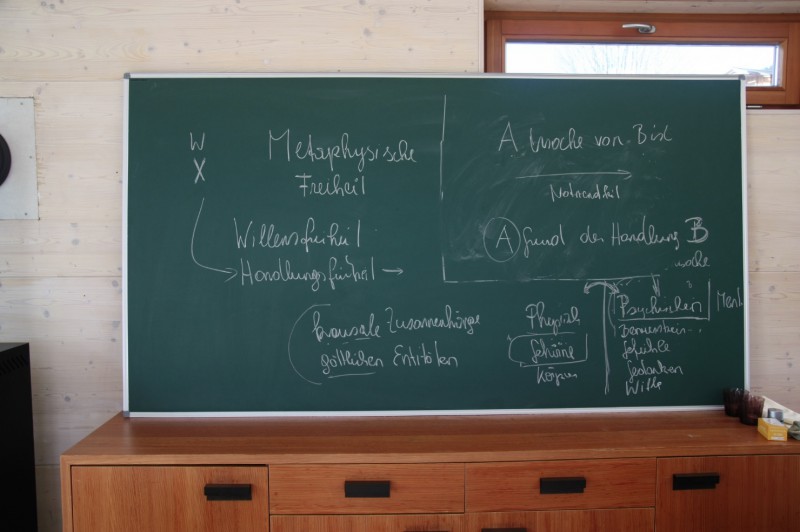 W
X
Metaphysische
Freiheit
Willensfreiheit
Handlungsfreiheit →
kausale Zusammenhänge
göttlichen Entitäten
A Ursache von B ist
Notwendigkeit
A Grund der Handlung B
Physisch
Gehirne
Körper
Psychischen
Gefühle
Gedanken
Wille